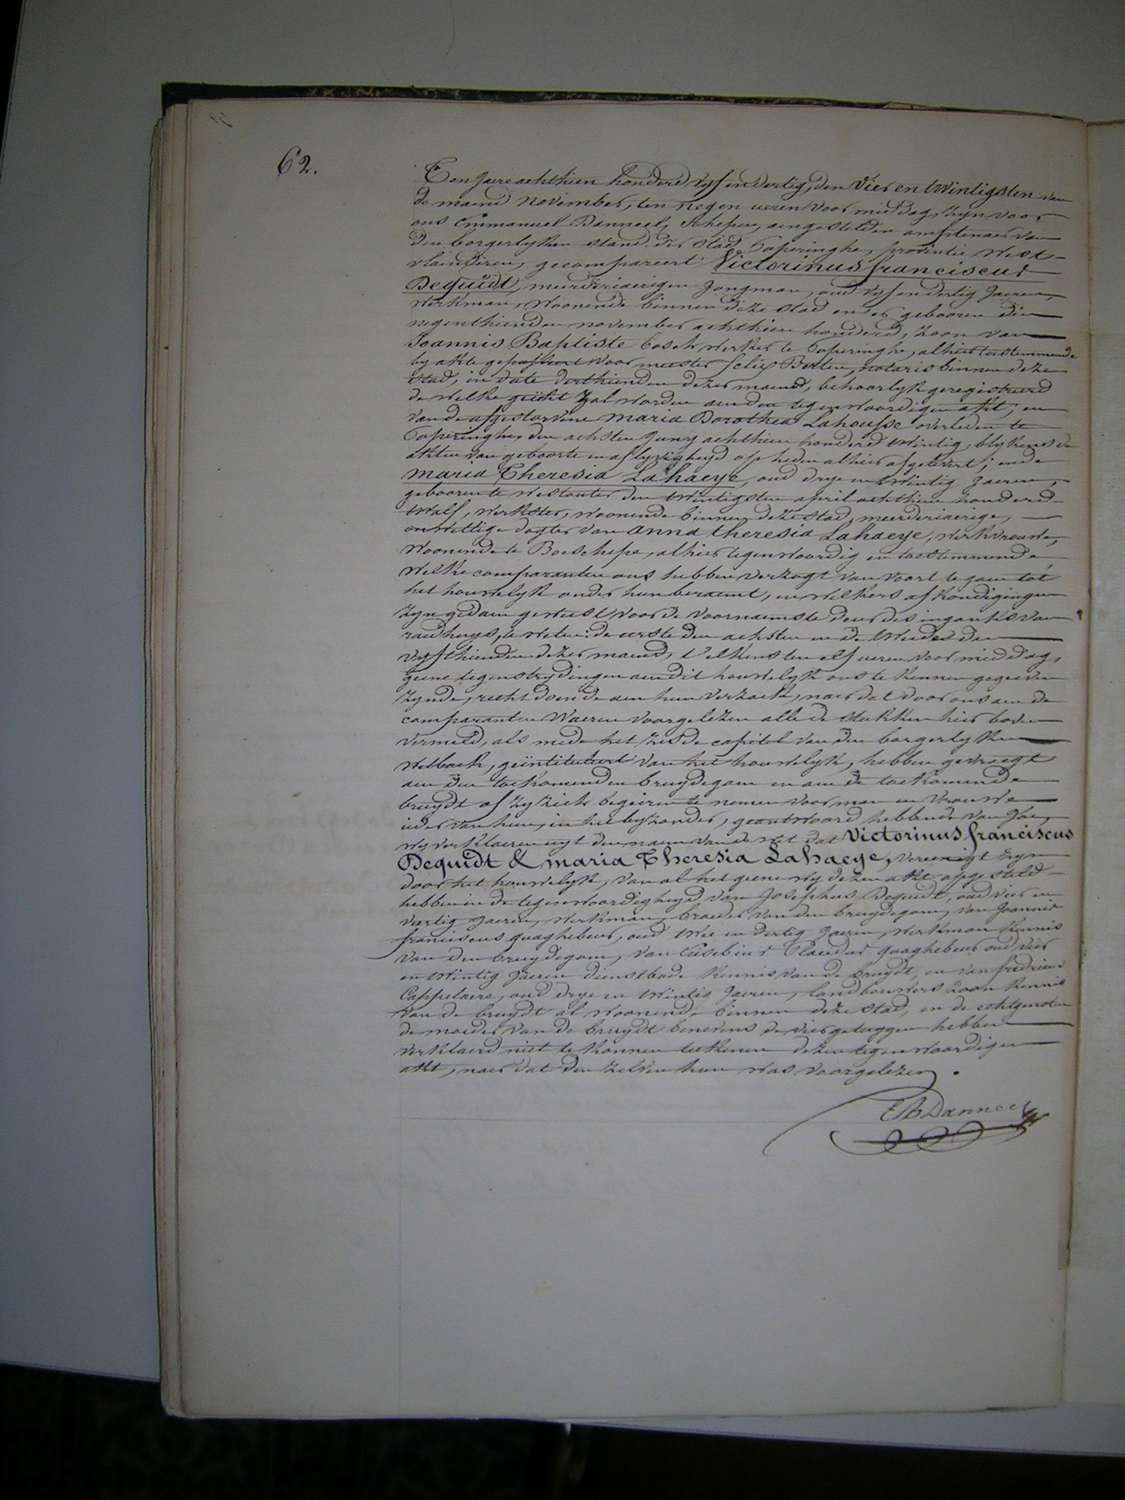 62.
Ten Jaere achthien honderd vyf en dertig, den Vier en twintigsten van
de maend November, ten negen ueren voormiddag, zyn voor
ons Emmanuel Danneel, schepen, aengestelden amptenaer van
den borgerlyken stand der stad Poperinghe, provintie West-
vlaenderen, gecompareert Victorinus franciscus
Dequidt, meerderjaerigen Jongman, oud vyf en dertig Jaeren,
werkman, woonende binnen deze stad en er gebooren den
negenthienden november achthien honderd, zoon van
Joannis Baptiste boschwerker te Poperinghe, alhier toestemmende
by akte gepasseert voor meester felix Berten, notaris binnen deze
stad, in date derthienden dezer maend, behoorlyk geregistreerd
de welke gehecht zal worden aen den tegenwoordigen akt, en
van de afgestorvene Maria Dorothea Lahousse overleden te
Poperinghe den achsten Juny achthien honderd twintig, blykens de
akten van geboorte en aflyvigheyd op heden alhier afgelevert; ende
Maria Theresia Lahaeye, oud drye en twintig Jaeren,
gebooren te Westouter den twintigsten april achthien honderd
twalf, werkster, woonende binnen deze stad, meerderjaerige,
onwettige dogter van Anna theresia Lahaeye, werkvrouwe,
woonende te Boeschepe, alhier tegenwoordig en toestemmende
welke comparanten ons hebben verzogt van voort te gaen tot
het houwelyk onder hun beraemt, en welkers afkondigingen
zyn gedaen geweest voor de voornaemste deur des ingangs van
raedhuys, te weten: de eerste den achsten en de tweede den
vyfthienden dezer maend, telkens ten elf ueren voormiddag,
geene tegenstrydingen aen dit houwelyk ons te kennen gegeven
zynde, recht doende aen hun verzoek, naer dat door ons aen de
comparanten waeren voorgelezen alle de stukken hier boven
vermeld, als mede het zesde capitel van den borgerlyken
wetboek, geïntituleert van het houwelyk, hebben gevraegt
aen den toekomenden bruydegom en aen de toekomende
bruydt of zy zich begeiren te nemen voor man en vrouwe
ieder van hun in het byzonder, geantwoord hebbende van Jae,
wy verklaeren uyt den naem van de wet dat Victorinus franciscus
Dequidt & Maria Theresia Lahaeye, vereenigt zyn
door het houwelyk, van al het geene wy dezen akt opgesteld
hebben in de tegenwoordigheyd van Josephus Dequidt, oud vier en
vertig Jaeren, werkman, broeder van den bruydegom, van Joannis
franciscus quaghebeur, oud twee en dertig Jaeren, werkman kennis
van den bruydegom, van Eusebius Claudus quaghebeur oud vier
en twintig Jaeren dienstbode kennis van de bruydt, en van fredricus
Cappelaere, oud drye en twintig Jaeren, landbouwers zoon kennis
van de bruydt al woonende binnen deze stad, en de echtgenoten
de moeder van de bruydt benevens de vier getuygen hebben
verklaerd niet te konnen teekenen dezen tegenwoordigen
akt, naer dat den zelven hun was voorgelezen.
E Danneel